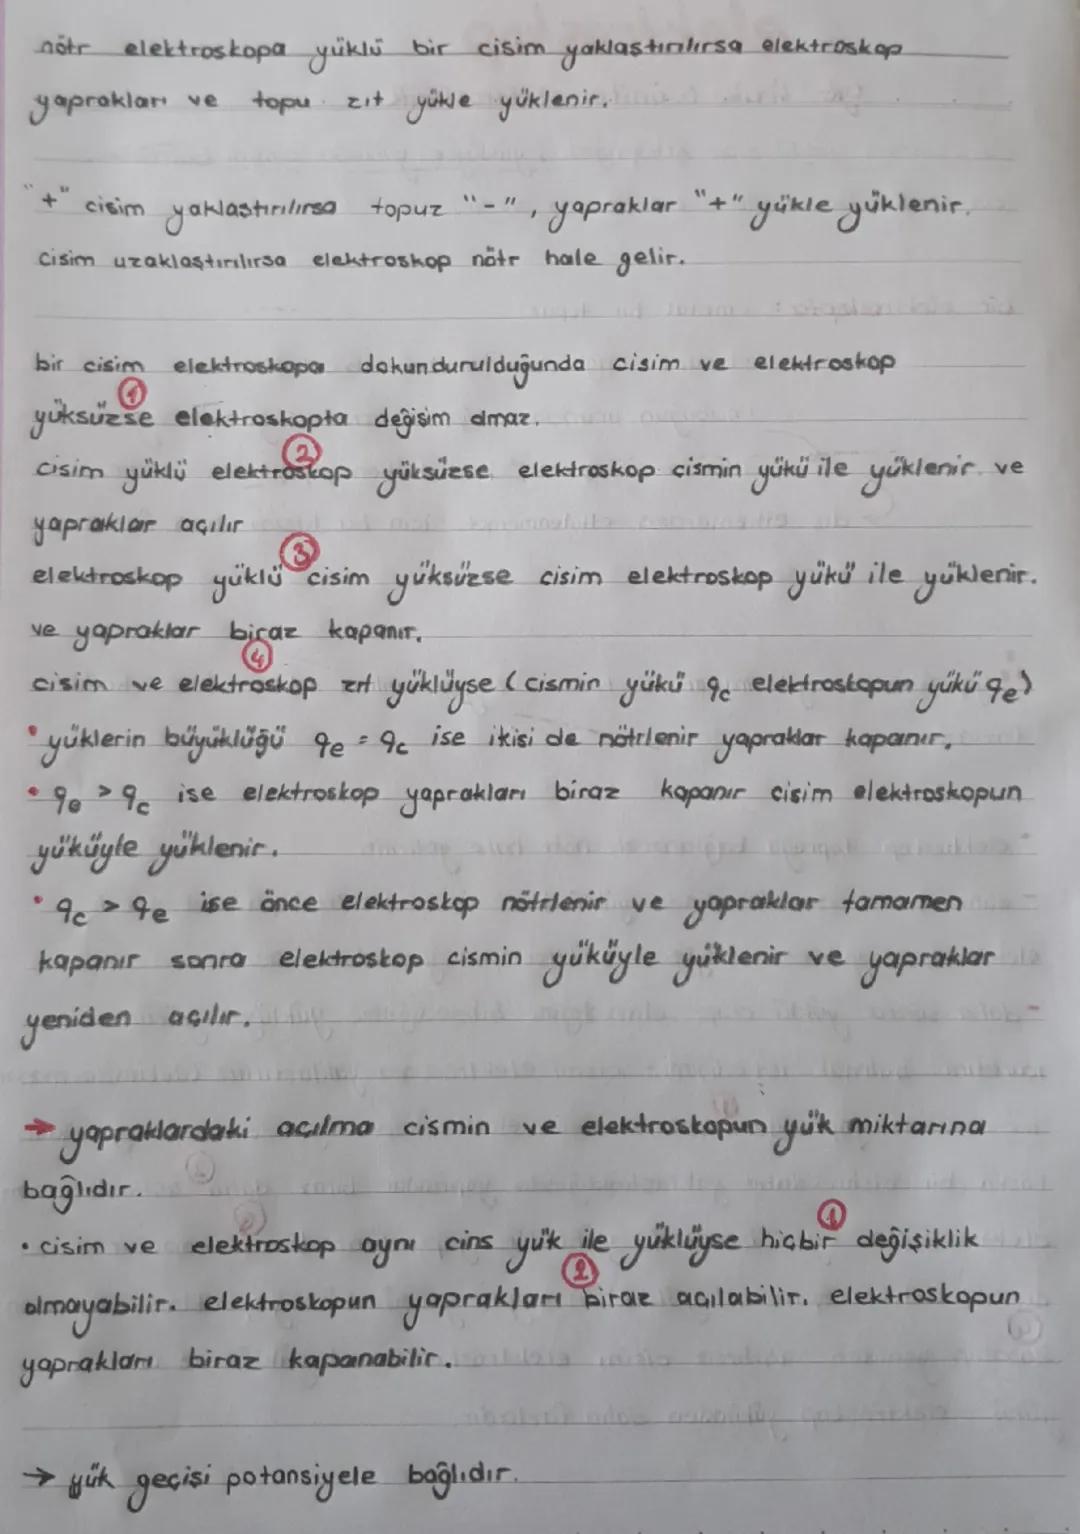 nötr elektroskopa yüklü bir cisim yaklaştırılırsa elektroskop
yaprakları ve topu zıt yükle yüklenir.
"+" cisim yaklaştırılırsa topuz "-", yapraklar "+" yükle yüklenir.
cisim uzaklaştırılırsa elektroskop nötr hale gelir.
bir cisim elektroskopa dokundurulduğunda cisim ve elektroskop
①
yüksüzse elektroskopta değişim olmaz.
②
cisim yüklü elektroskop yüksüzse elektroskop cismin yükü ile yüklenir ve
yapraklar açılır
③
elektroskop yüklü cisim yüksüzse cisim elektroskop yükü ile yüklenir.
ve yapraklar biraz kapanır.
④
cisim ve elektroskop zıt yüklüyse (cismin yükü qc elektroskopun yükü qe)
• yüklerin büyüklüğü qe = qc ise ikisi de nötrlenir yapraklar kapanır.
• qe > qc ise elektroskop yaprakları biraz kapanır cisim elektroskopun
yüküyle yüklenir.
• qc > qe ise önce elektroskop nötrlenir ve yapraklar tamamen
kapanır sonra elektroskop cismin yüküyle yüklenir ve yapraklar
yeniden açılır.
→ yapraklardaki açılma cismin ve elektroskopun yük miktarına
bağlıdır.
①
• cisim ve elektroskop aynı cins yük ile yüklüyse hiçbir değişiklik
②
olmayabilir. elektroskopun yaprakları biraz açılabilir. elektroskopun
yaprakları biraz kapanabilir.
→ yük geçişi potansiyele bağlıdır.